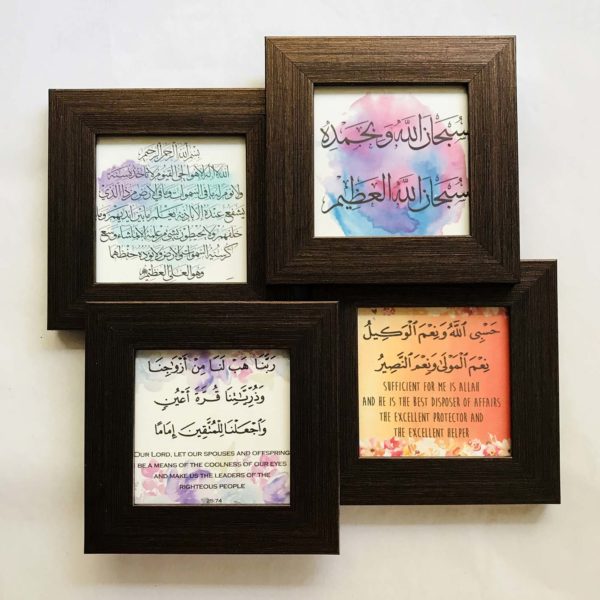 بسم الله الرحمن الرحيم
الله لا إله إلا هو الحي القيوم لا تأخذه سنة
ولا نوم له ما في السموات وما في الأرض من ذا الذي
يشفع عنده إلا بإذنه يعلم ما بين أيديهم وما
خلفهم ولا يحيطون بشيء من علمه إلا بما شاء وسع
كرسيه السموات والأرض ولا يؤده حفظهما
وهو العلي العظيم
سُبْحَانَ اللهِ وَبِحَمْدِهِ
سُبْحَانَ اللهِ الْعَظِيْمِ
رَبَّنَا هَبْ لَنَا مِنْ أَزْوَاجِنَا
وَذُرِّيَّاتِنَا قُرَّةَ أَعْيُنٍ
وَاجْعَلْنَا لِلْمُتَّقِينَ إِمَامًا
OUR LORD, LET OUR SPOUSES AND OFFSPRING
BE A MEANS OF THE COOLNESS OF OUR EYES
AND MAKE US THE LEADERS OF THE
RIGHTEOUS PEOPLE
25:74
حَسْبِيَ ٱللَّهُ وَنِعْمَ ٱلْوَكِيلُ
نِعْمَ ٱلْمَوْلَىٰ وَنِعْمَ ٱلنَّصِيرُ
SUFFICIENT FOR ME IS ALLAH
AND HE IS THE BEST DISPOSER OF AFFAIRS
THE EXCELLENT PROTECTOR AND
THE EXCELLENT HELPER